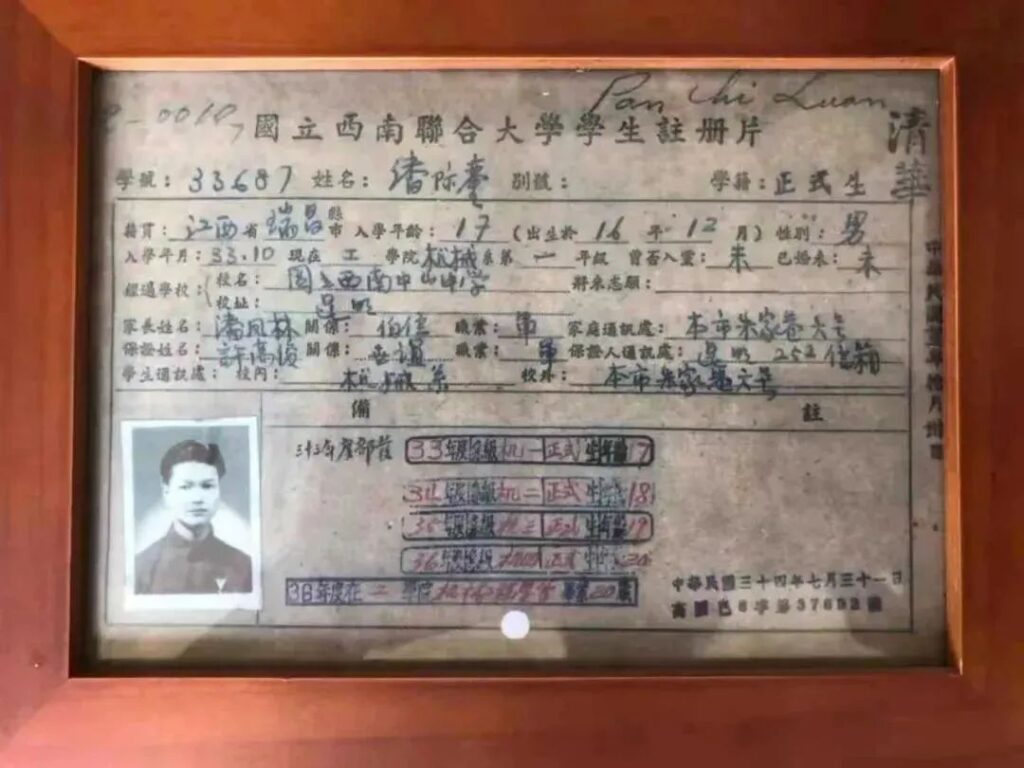 Pan Chi Luan
國立西南聯合大學學生註册片
清華
學號：33687 姓名：潘际銮 別號： 學籍：正式生
籍貫：江西省瑞昌縣市 入學年齡：17 （出生於16年12月）性別：男
入學年月：33.10 現在工學院机械系第一年級 曾否入黨：未 已婚未：未
經過學校：校名：國立西南中山中学 將來志願：
校址：昆明
家長姓名：潘凤林 關係： 職業：軍 家庭通訊處：本市朱家巷六号
保證姓名： 關係： 職業：軍 保證人通訊處：昆明252信箱
學生通訊處：校內：机械系 校外：本市朱家巷六号
備 註
33年度 級机一正式生年齡17
34年度 級机二正式生 18
35年度 級机三正式生年齡19
36年度 級机四正式生 20
38年度在工學院机械 學系畢業20
中華民國三十四年七月三十一日
字第37692號